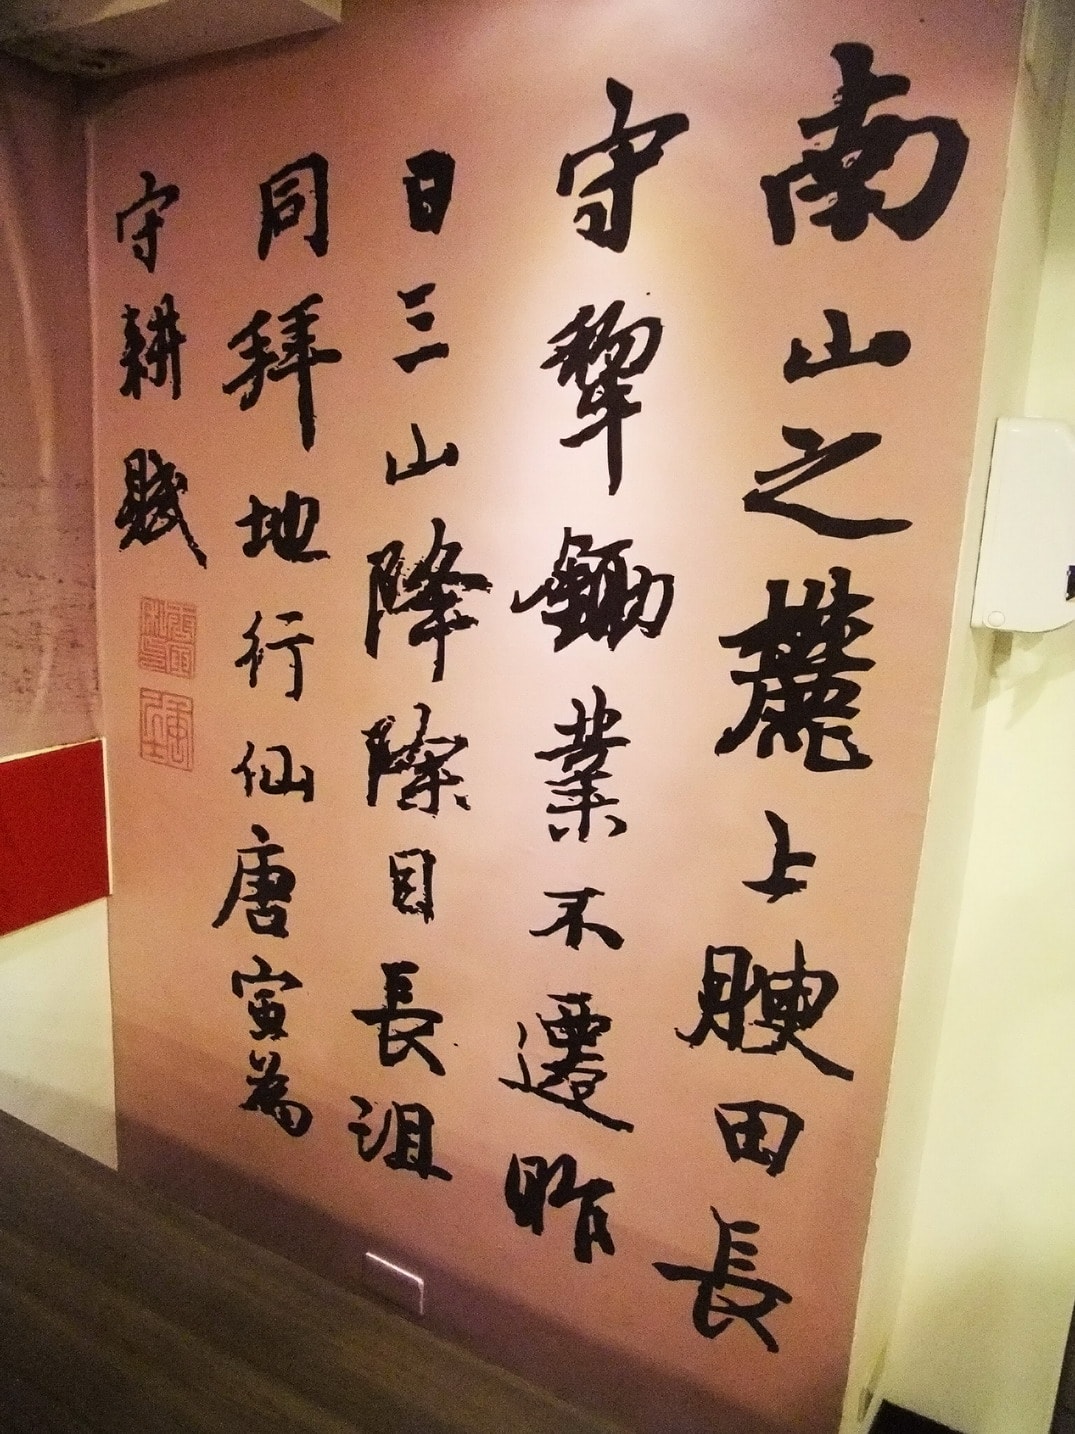 南山之麓上腴田長
守犂鋤業不遷昨
日三山降際目長沮
同拜地行仙唐寅為
守耕賦